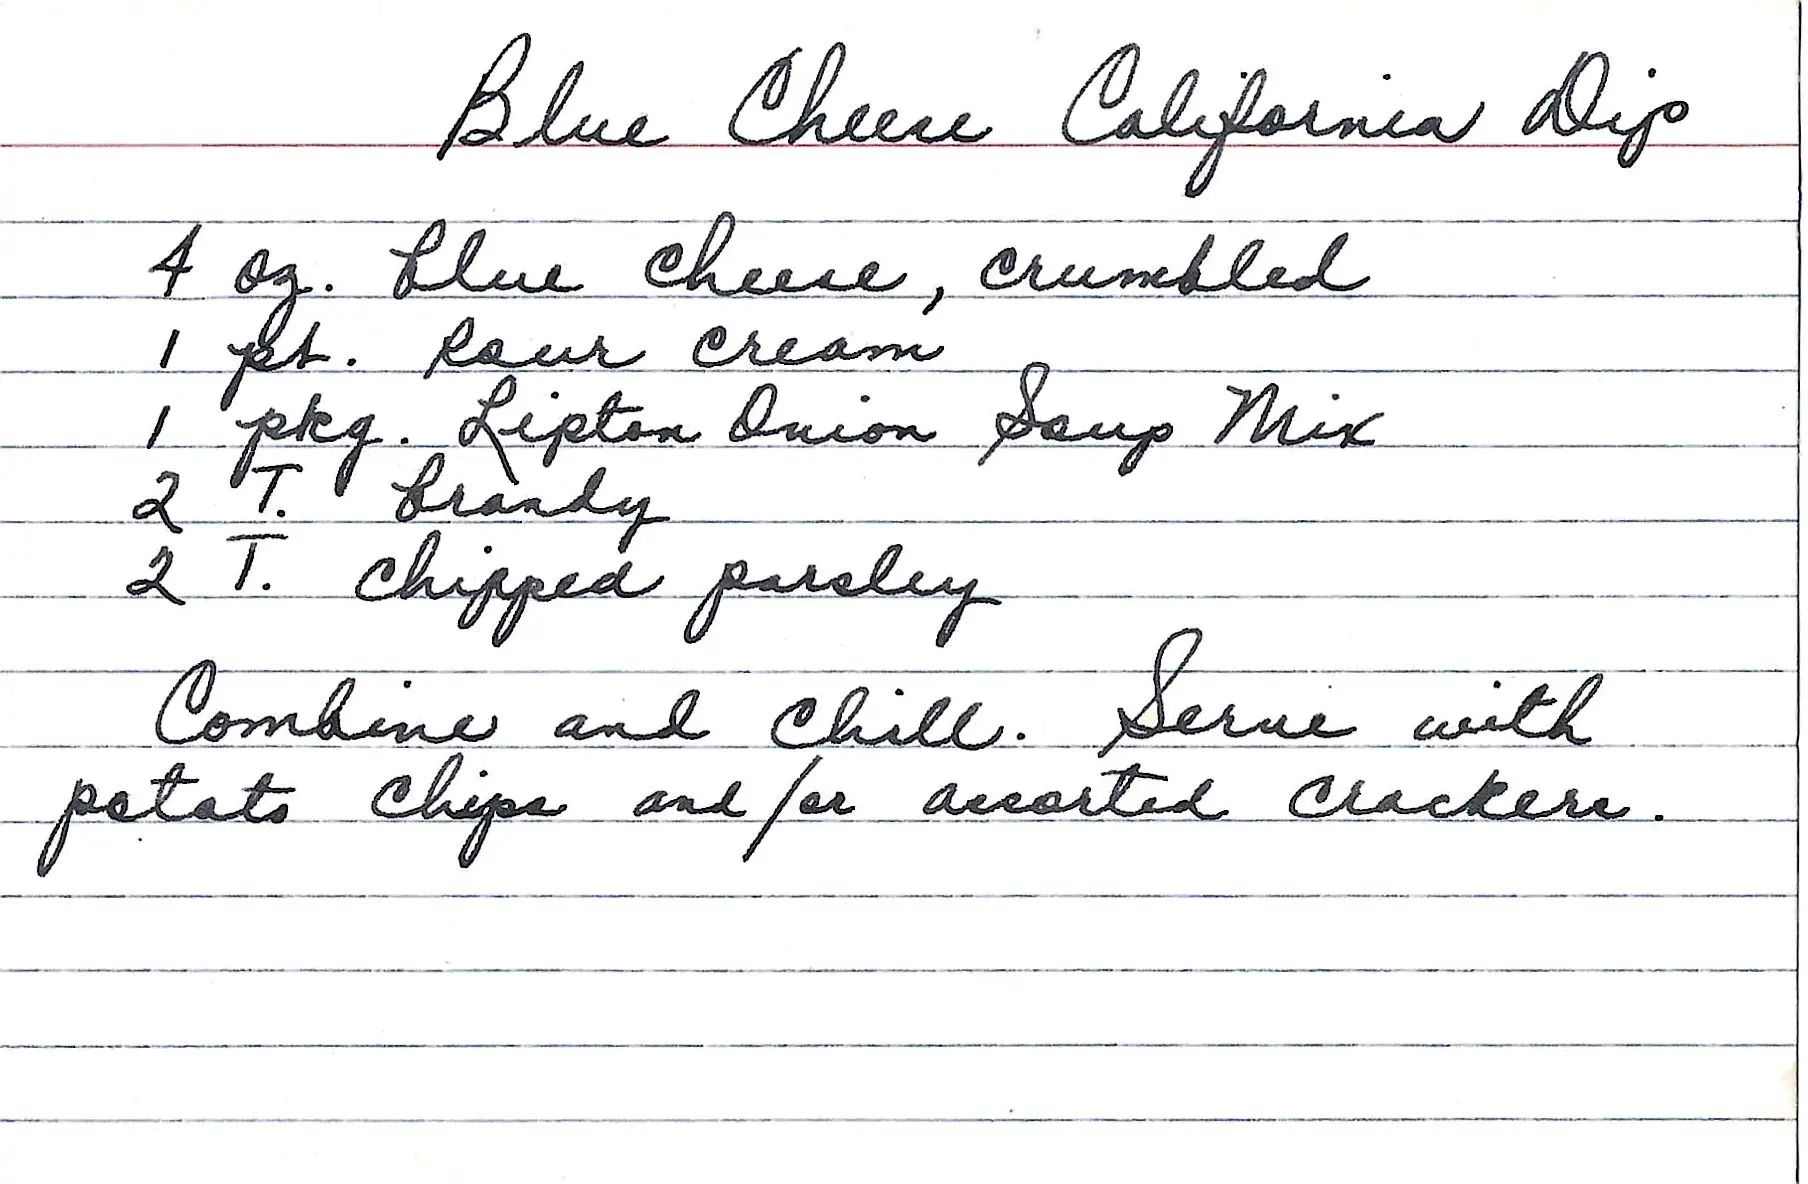 Blue Cheese California Dip
4 oz. blue cheese, crumbled
1 pt. sour cream
1 pkg. Lipton Onion Soup Mix
2 T. brandy
2 T. chipped parsley
Combine and chill. Serve with
potato chips and/or assorted crackers.